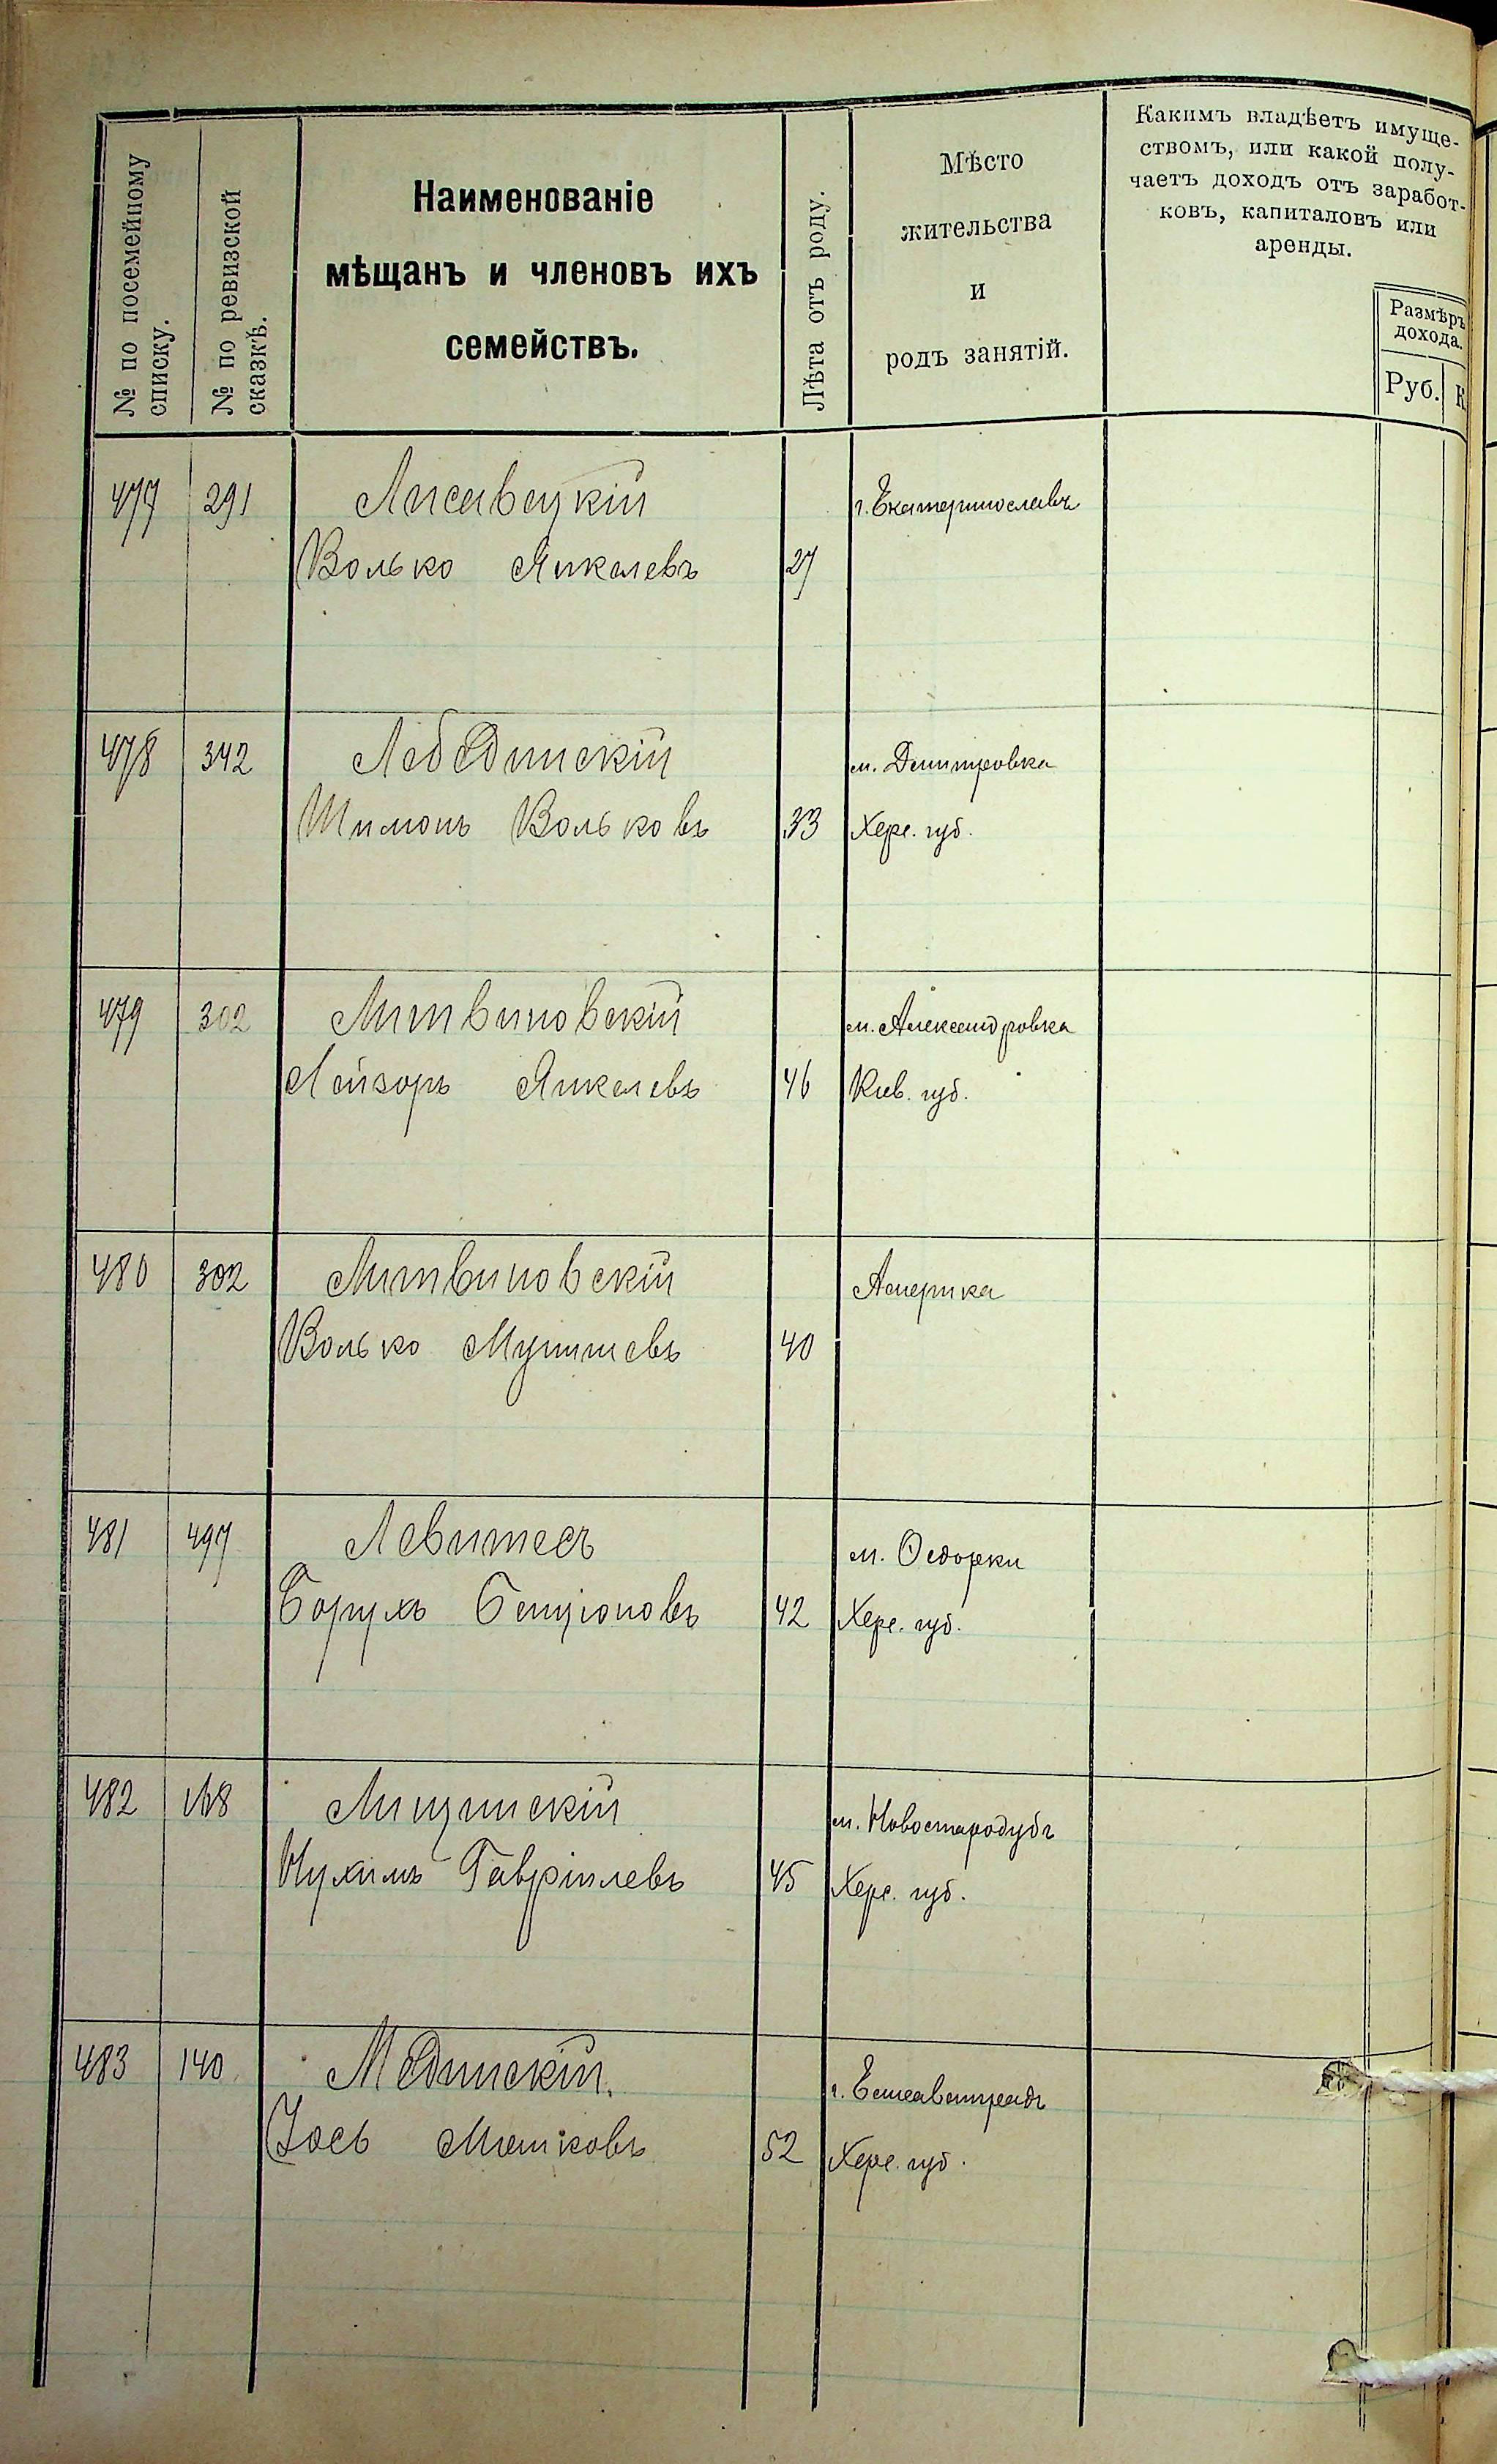 № по посемейному списку.
№ по ревизской сказкѣ.
Наименованіе
мѣщанъ и членовъ ихъ
семействъ.
Лѣта отъ роду.
Мѣсто
жительства
и
родъ занятій.
Какимъ владѣетъ имуще-
ствомъ, или какой полу-
чаетъ доходъ отъ заработ-
ковъ, капиталовъ или
аренды.
Размѣръ
дохода.
Руб. К
477 291 Лисавецкій г. Екатеринославъ
Волько Янкелевъ 27
478 342 Лебединскій м. Димитровка
Шимонъ Вольковъ 33 Херс. губ.
479 302 Литвиновскій м. Александровка
Лейзоръ Янкелевъ 46 Кіев. губ.
480 302 Литвиновскій Америка
Волько Мунишевъ 40
481 497 Левитесъ м. Федорки
Борухъ Бенціоновъ 42 Херс. губ.
482 Лищинскій м. Новостародубъ
Нухимъ Гавріилевъ 45 Херс. губ.
483 140 Мединскій. г. Елисаветградъ
Іось Мошковъ 52 Херс. губ.